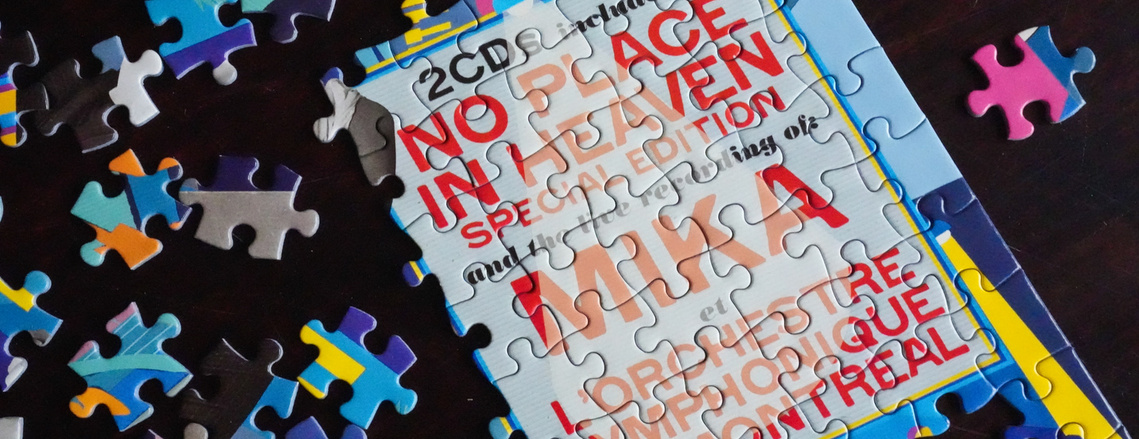 2CDs includ
NO PLACE
IN HEAVEN
SPECIAL EDITION
and the live recording of:
MIKA
et
L'ORCHESTRE
YMPHONIQUE
ONTREAL